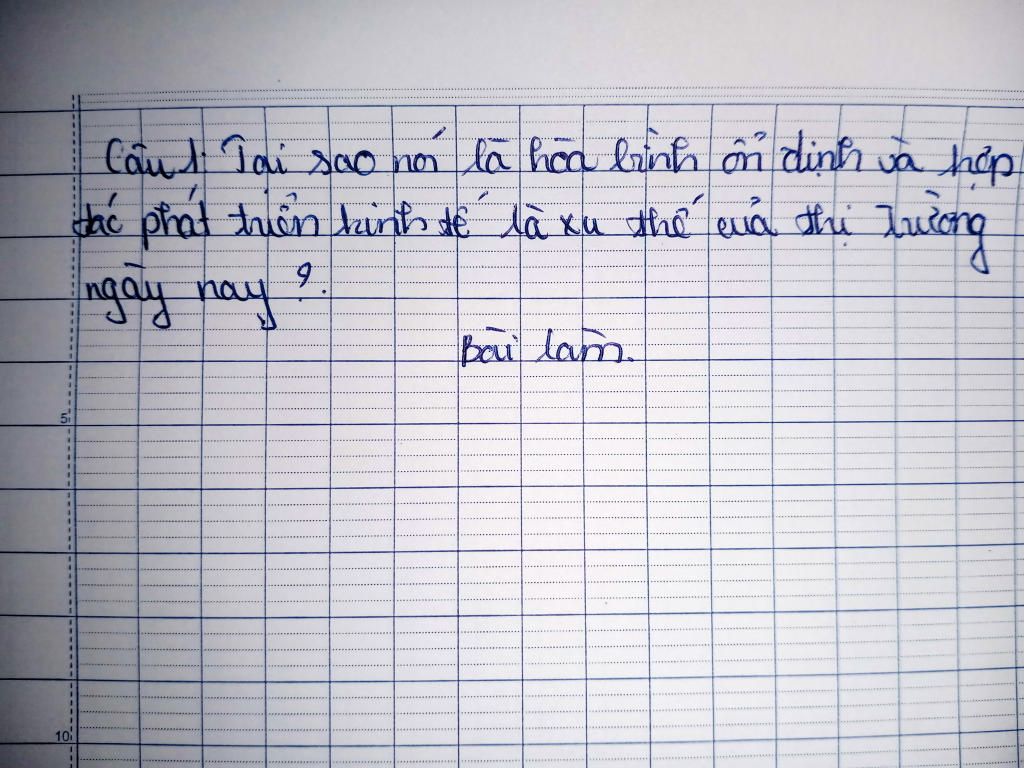 Câu 1: Tại sao nói là hòa bình ổn định và hợp
tác phát triển kinh tế là xu thế của thị trường
ngày nay?.
Bài làm.
5
10